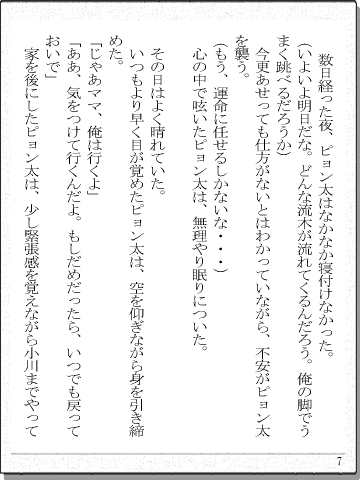 数日経った夜、ピョン太はなかなか寝付けなかった。
（いよいよ明日だな。どんな流木が流れてくるんだろう。俺の脚でう
まく跳べるだろうか）
　今更あせっても仕方がないとはわかっていながら、不安がピョン太
を襲う。
（もう、運命に任せるしかないな・・・）
　心の中で呟いたピョン太は、無理やり眠りについた。
　その日はよく晴れていた。
　いつもより早く目が覚めたピョン太は、空を仰ぎながら身を引き締
めた。
「じゃあママ、俺は行くよ」
「ああ、気をつけて行くんだよ。もしだめだったら、いつでも戻って
おいで」
　家を後にしたピョン太は、少し緊張感を覚えながら小川までやって
7